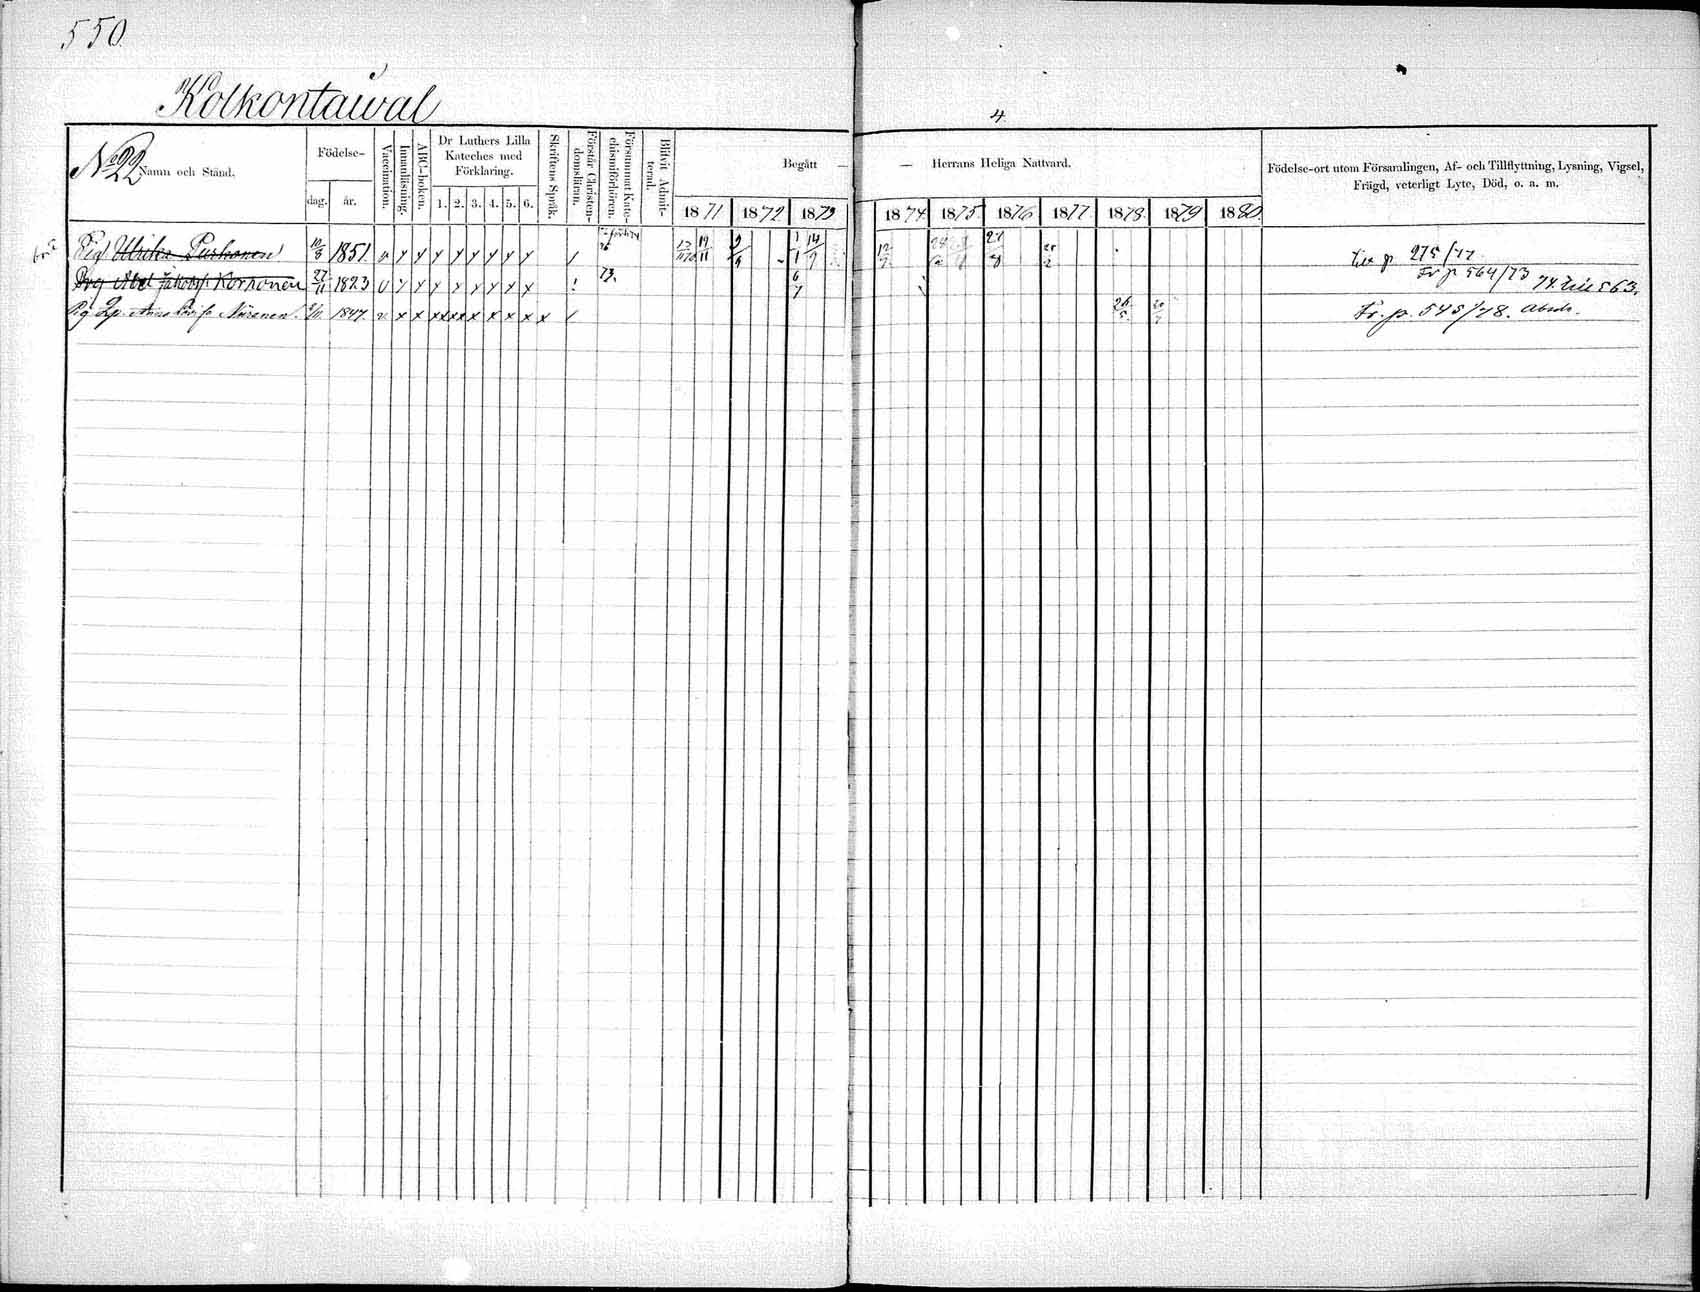 550.
Kolkontaival
4.
No 22
Namn och Stånd.
Födelse-
dag.
år.
Vaccination.
Innanläsning.
ABC-boken.
Dr Luthers Lilla
Kateches med
Förklaring.
1. 2. 3. 4. 5. 6.
Skriftens Språk.
Förstår Christen-
domsläran.
Försummat Kate-
chismiförhören.
Blifvit Admit-
terad.
Begått — — Herrans Heliga Nattvard.
1871 1872 1873 1874 1875 1876 1877 1878 1879 1880
Födelse-ort utom Församlingen, Af- och Tillflyttning, Lysning, Vigsel,
Frägd, veterligt Lyte, Död, o. a. m.
Pig Ulrika Purhonen 10/3 1851. v x x x x x x x x / 14/1 12/7 Till p 275/77
Drg Abel Jakobsf Korhonen 27/11 1823 v x x x x x x x x / 73. 6/7 Fr p 564/73 74 till 563.
Pig 1847. v x x x x x x x x x x / Fr. p. 545/78.